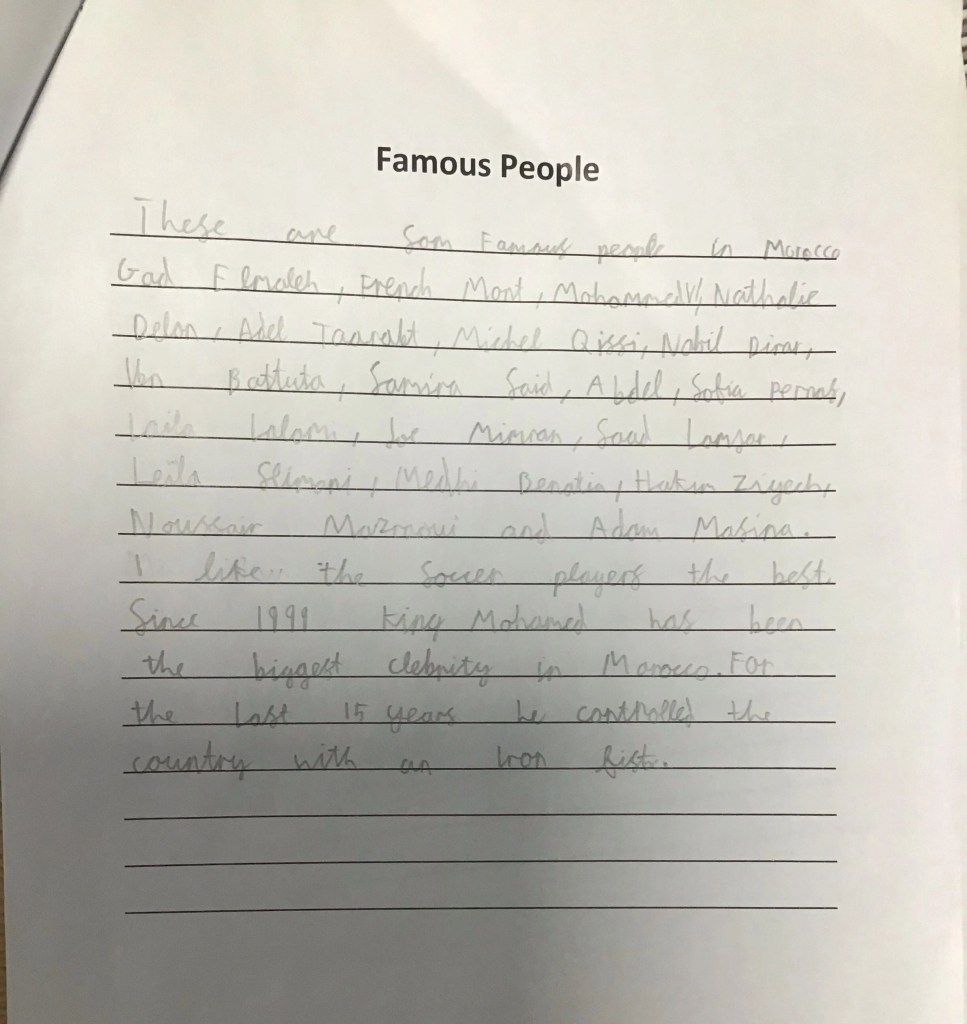 Famous People
These are Som Famous people in Morocco
Gad Elmaleh, French Mont, MohammedVI, Nathalie
Delon, Adel Taarabt, Michel Qissi, Nabil Dirar,
Ibn Battuta, Samira Said, Abdel, Sofia pernas,
Laila Lalami, Joe Mimran, Saad Lamjar,
Leila Slimani, Medhi Benatia, Hakim Ziyech,
Noussair Mazraoui and Adam Masina.
I like the Soccer players the best.
Since 1999 King Mohamed has been
the biggest clebrity in Morocco. For
the last 15 years he controlled the
country with an Iron fist.